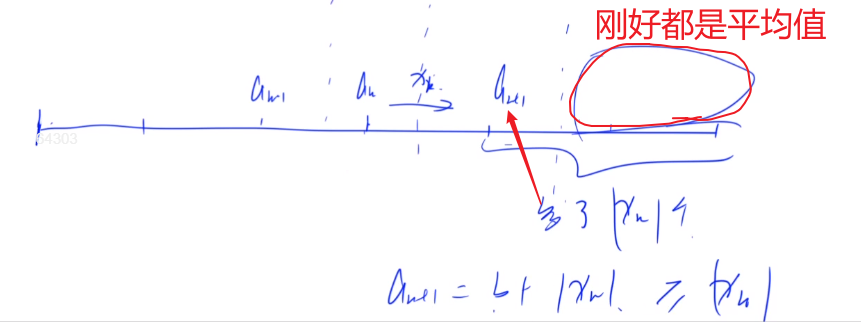 刚好都是平均值
aₙ₋₁ aₙ xₙ aₙ₊₁
64303
3 |xₙ| 个
aₙ₊₁ = 5+ |xₙ|. ≥ |xₙ|